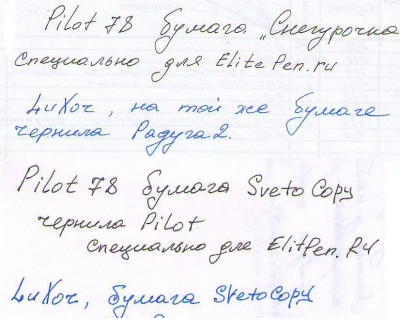 Pilot 78 бумага „Снегурочка
специально для ElitePen.ru
Luxor, на той же бумаге
чернила Радуга 2.
Pilot 78 бумага SvetoCopy
чернила Pilot
специально для ElitPen.Ru
Luxor, бумага SvetoCopy